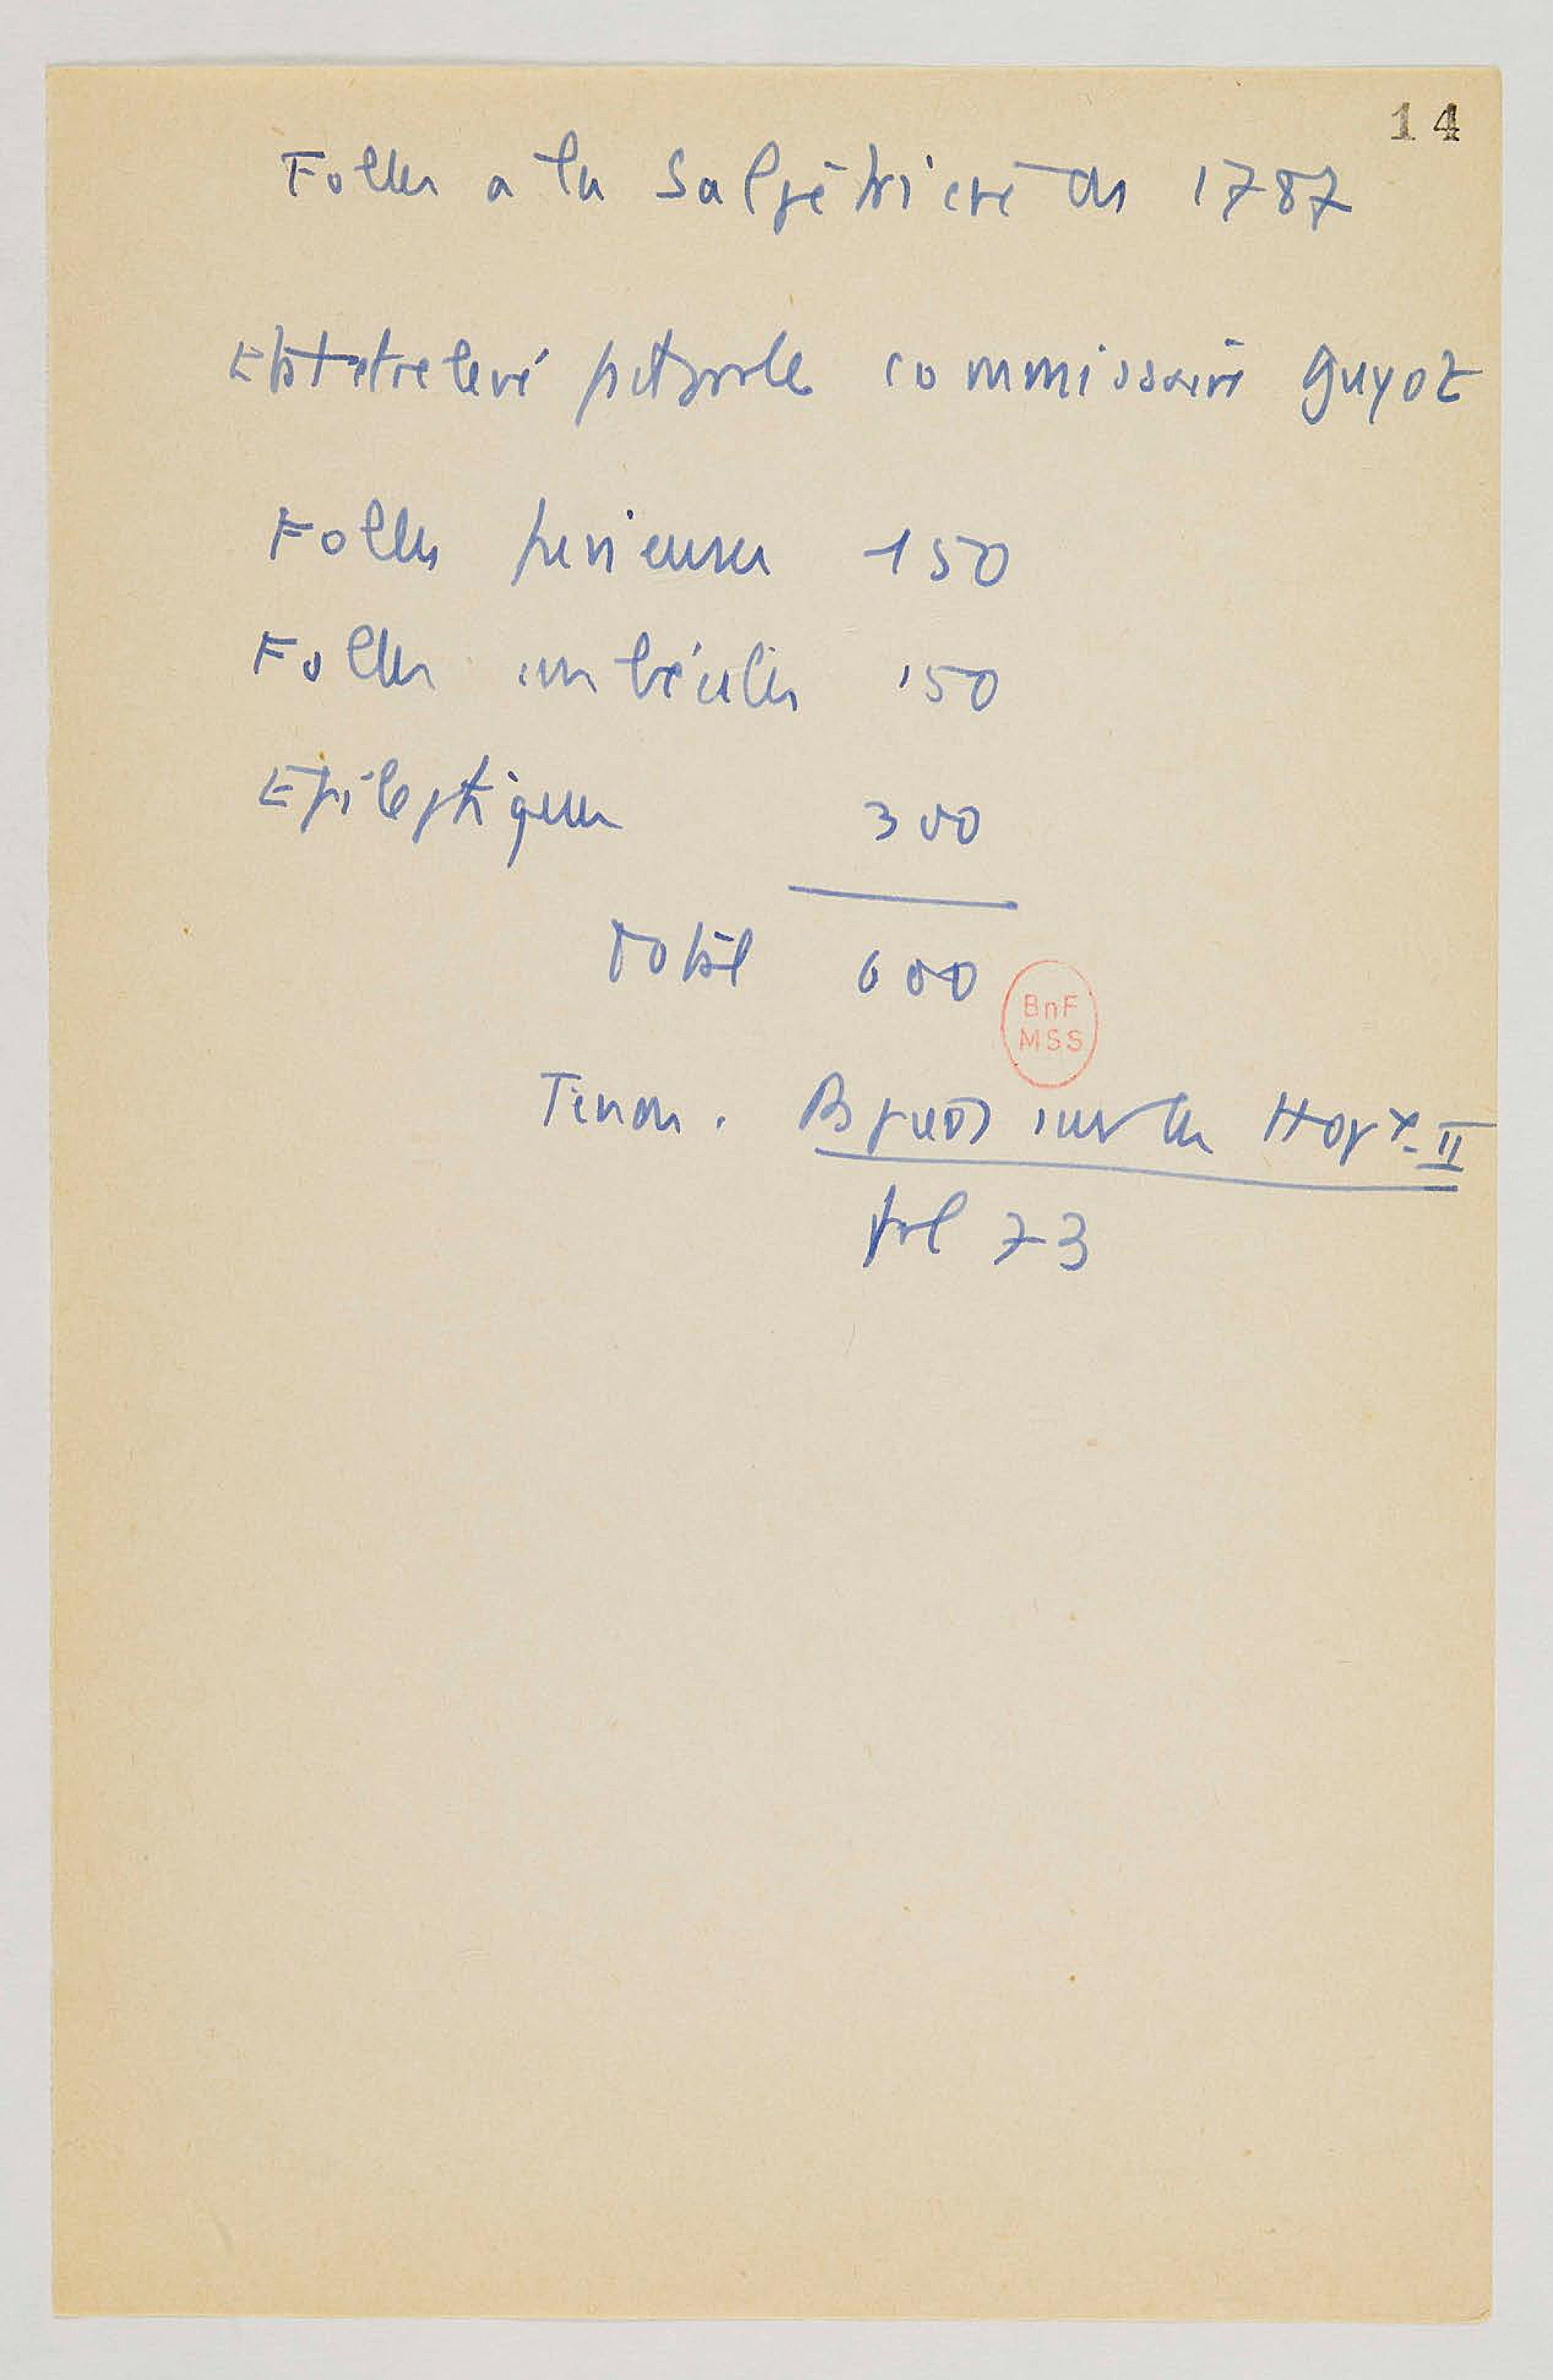 14
Folles a la Salpêtrière en 1787
Etat relevé par le commissaire Guyot
Folles furieuses 150
Folles imbéciles 150
Epileptiques 300
Total 600
BnF
MSS
Tenon. Papiers sur les Hopx. II
fol 73